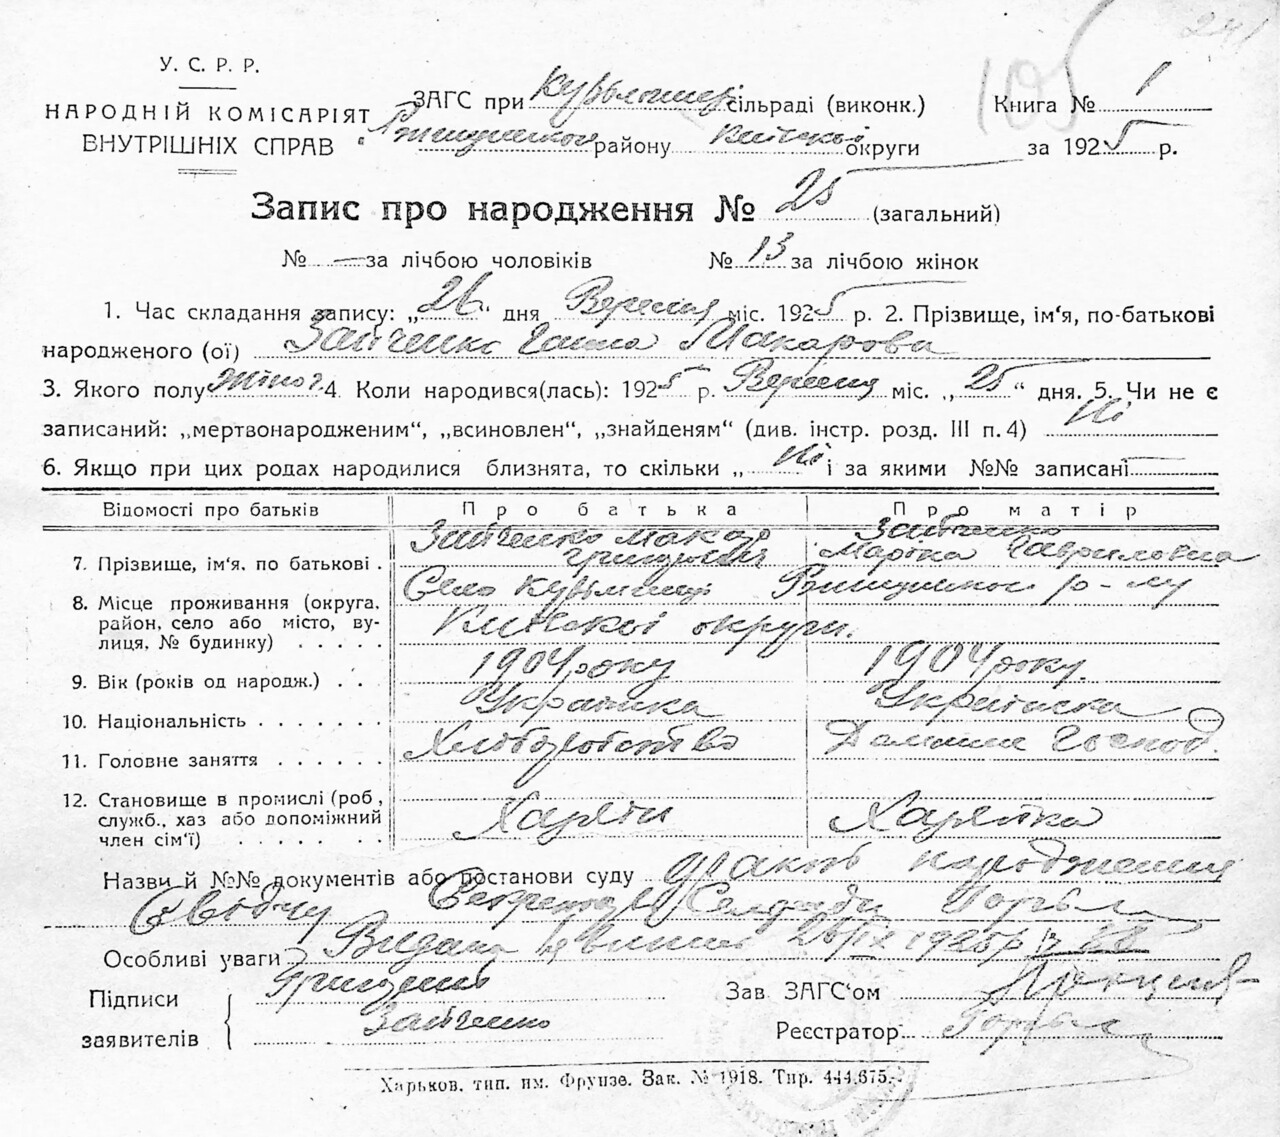 241
105
У. С. Р. Р.
НАРОДНІЙ КОМІСАРІЯТ
ВНУТРІШНІХ СПРАВ
ЗАГС при сільраді (виконк.)
району Київської округи
Книга № 1
за 1925 р.
Запис про народження № 25 (загальний)
№ — за лічбою чоловіків № 13 за лічбою жінок
1. Час складання запису: „26“ дня Вересня міс. 1925 р. 2. Прізвище, ім‘я, по-батькові
народженого (ої) Зайченко Ганна Макарова
3. Якого полу Жіноч. 4. Коли народився(лась): 1925 р. Вересня міс. „25“ дня. 5. Чи не є
записаний: „мертвонародженим“, „всиновлен“, „знайденям“ (див. інстр. розд. III п. 4) Ні
6. Якщо при цих родах народилися близнята, то скільки „ Ні і за якими №№ записані
Відомості про батьків Про батька Про матір
7. Прізвище, ім‘я, по батькові . Зайченко Макар Зайченко
Марфа Гавриловна
8. Місце проживання (округа, район, село або місто, вулиця, № будинку) . . . . . Село р-ну
Київської округи.
9. Вік (років од народж.) . . 1904 року 1904 року.
10. Національність . . . . . . . Українка
11. Головне заняття . . . . . . Хліборобство Домашнє Господ.
12. Становище в промислі (роб., служб., хаз або допоміжний член сім‘ї) . . . . . . . Хазяїн Хазяйка
Назви й №№ документів або постанови суду народження
Секретар Сельради
Особливі уваги Видана 26/IX 1925 р.
Підписи
заявителів
Зайченко
Зав ЗАГС‘ом
Реєстратор
Харьков. тип. им. Фрунзе. Зак. № 1918. Тир. 444.675.